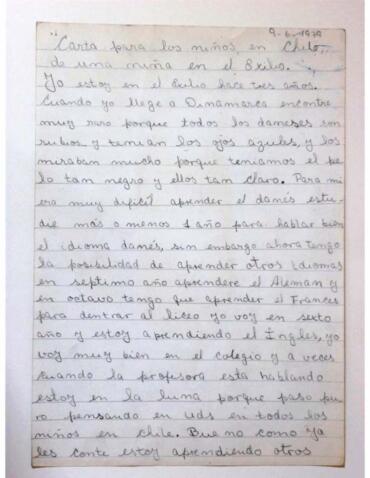 9-6-1979
"Carta para los niños, en Chile,
de una niña en el Exilio.
Yo estoy en el Exilio hace tres años.
Cuando yo llege a Dinamarca encontre
muy raro porque todos los daneses son
rubios y tenian los ojos azules, y los
miraban mucho porque teniamos el pe
lo tan negro y ellos tan claro. Para mi
era muy difícil aprender el danés estu-
die más o menos 1 año para hablar bien
el idioma danés, sin embargo ahora tengo
la posibilidad de aprender otros idiomas
en septimo año aprendere el Aleman y
en octavo tengo que aprender el Frances
para dentrar al liceo yo voy en sexto
año y estoy aprendiendo el Ingles, yo
voy muy bien en el colegio y a veces
cuando la profesora esta hablando
estoy en la luna porque paso pu
ro pensando en uds en todos los
niños en chile. Bueno como ya
les conte estoy aprendiendo otros